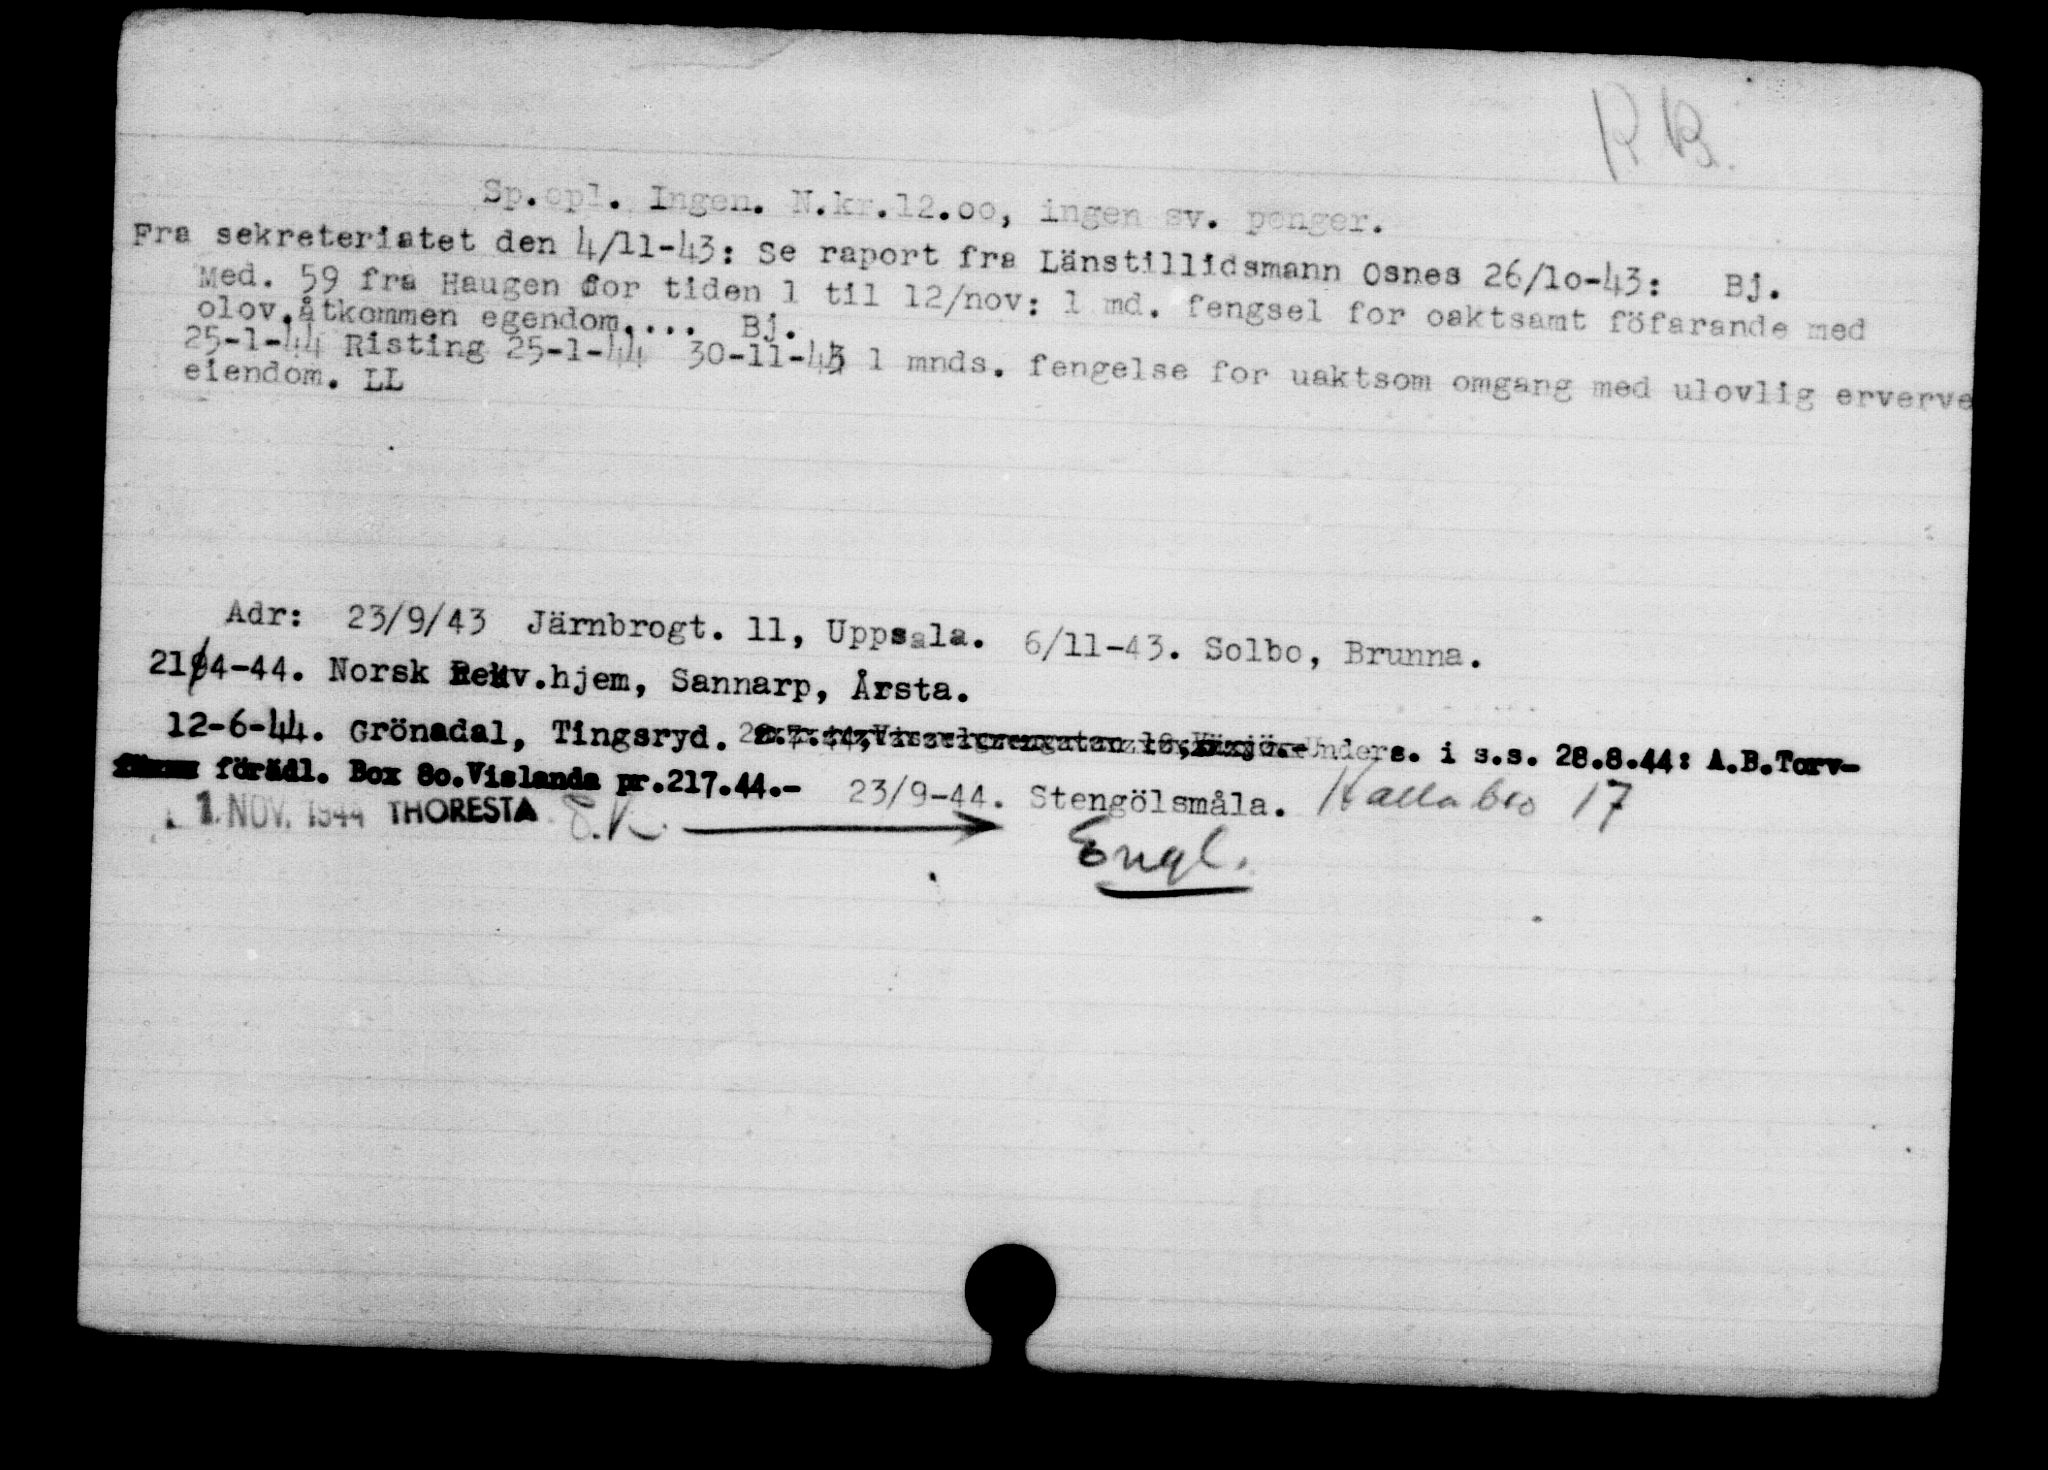 R B.
Sp.opl. Ingen. N.kr.12.oo, ingen sv. penger.
Fra sekreteriatet den 4/11-43: Se raport fra Länstillidsmann Osnes 26/10-43: Bj.
Med. 59 fra Haugen for tiden 1 til 12/nov: 1 md. fengsel for oaktsamt föfarande med
olov.åtkommen egendom.... Bj.
25-1-44 Risting 25-1-44 30-11-43 1 mnds. fengelse for uaktsom omgang med ulovlig erverve
eiendom. LL
Adr: 23/9/43 Järnbrogt. 11, Uppsala. 6/11-43. Solbo, Brunna.
21/4-44. Norsk Rekv.hjem, Sannarp, Årsta.
12-6-44. Grönadal, Tingsryd. Unders. i s.s. 28.8.44: A.B.Torv-
förädl. Box 8o.Vislanda pr.217.44.- 23/9-44. Stengölsmåla. Kallabro 17
1. NOV. 1944 THORESTA
Engl.